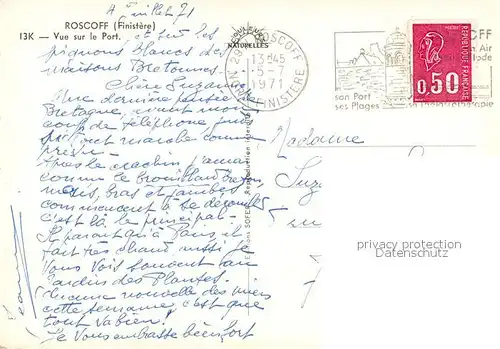 4 Juillet 71
ROSCOFF (Finistère)
13K — Vue sur le Port.
et sur les
pignons blancs des
maisons Bretonnes.
COULEURS
NATURELLES
Chère Suzanne
Une dernière pensée de
Bretagne, avant mon
coup de téléphone
ont marché comme
prévu.
Après le machin j'aurai
comme le Brouillard Breton,
mais, bras et jambes
commencent à se dérouiller
c'est là le principal.
Il paraît qu'à Paris, il
fait très chaud aussi je
Vous vois souvent au
Jardin des Plantes.
Aucune nouvelle des miens
cette semaine, c'est que
tout va bien!
Je vous embrasse bien fort
Reproduction interdite
ROSCOFF
13H45
5-7
1971
FINISTERE
son Port
ses Plages
FF
Air
POSTES
REPUBLIQUE FRANÇAISE
0,50
Madame
Suz
privacy protection
Datenschutz